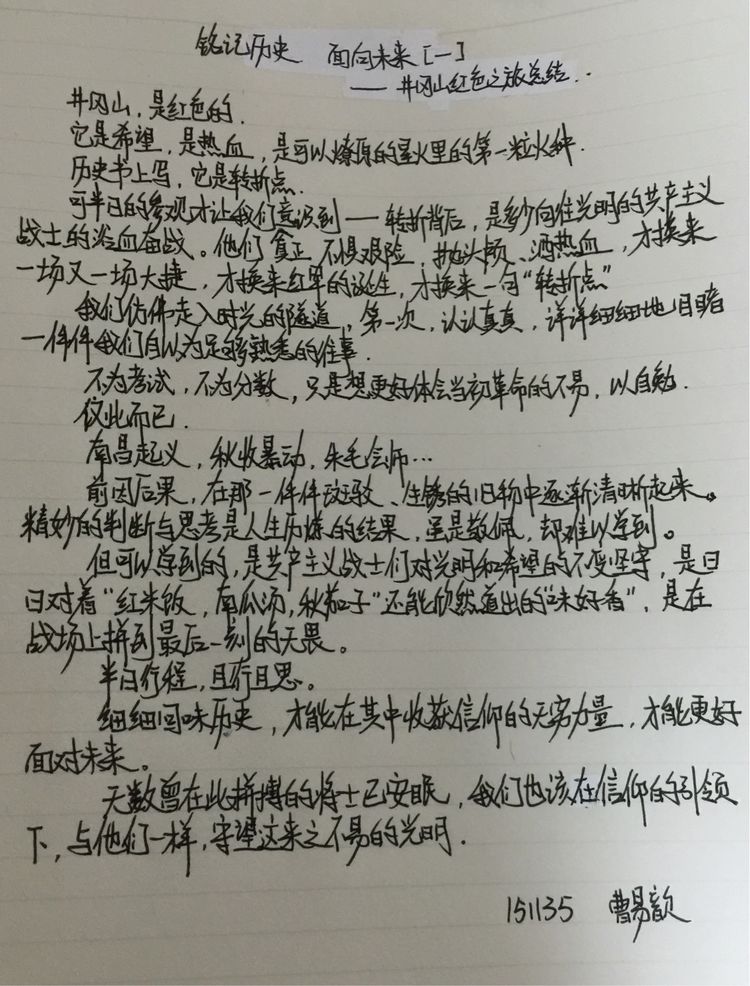 铭记历史 面向未来[一]
——井冈山红色之旅总结..
井冈山,是红色的.
它是希望,是热血,是可以燎原的星火里的第一粒火种.
历史书上写,它是转折点.
可半日的参观才让我们意识到——转折背后,是多少向往光明的共产主义
战士的浴血奋战。他们 不惧艰险,抛头颅、洒热血,才换来
一场又一场大捷,才换来红军的诞生,才换来一句“转折点”
我们仿佛走入时光的隧道,第一次,认认真真,详详细细地目睹
一件件我们自以为足够熟悉的往事.
不为考试,不为分数,只是想更好体会当初革命的不易,以自勉.
仅此而已.
南昌起义,秋收暴动,朱毛会师…
前因后果,在那一件件斑驳、生锈的旧物中逐渐清晰起来。
精妙的判断与思考是人生历炼的结果,虽是敬佩,却难以学到。
但可以学到的,是共产主义战士们对光明和希望的不变坚守,是日
日对着“红米饭,南瓜汤,秋茄子”还能欣然道出的“味好香”,是在
战场上拼到最后一刻的无畏。
半日行程,且行且思。
细细回味历史,才能在其中收获信仰的无穷力量,才能更好
面对未来。
无数曾在此拼搏的将士已安眠,我们也该在信仰的引领
下,与他们一样,守望这来之不易的光明.
151135 曹易歆